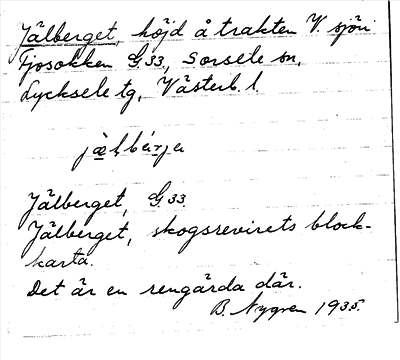 Jälberget, höjd å trakten V. sjön
Tjosokken G 33, Sorsele sn,
Lycksele tg, Västerb. l.
jälbärje
Jälberget, G 33.
Jälberget, skogsrevirets block-
karta.
Det är en rengärda där.
B. Nygren 1935.